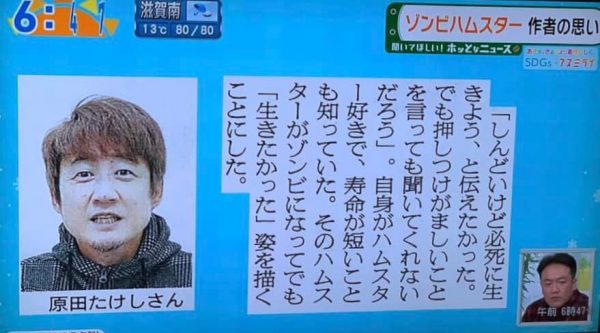 6:47
滋賀南
13℃ 80/80
ゾンビハムスター 作者の思い
聞いてほしい!ホッとなニュース
SDGs
「しんどいけど必死に生
きよう、と伝えたかった。
でも押しつけがましいこと
を言っても聞いてくれない
だろう」。自身がハムスタ
ー好きで、寿命が短いこと
も知っていた。そのハムス
ターがゾンビになってでも
「生きたかった」姿を描く
ことにした。
原田たけしさん
午前 6時47